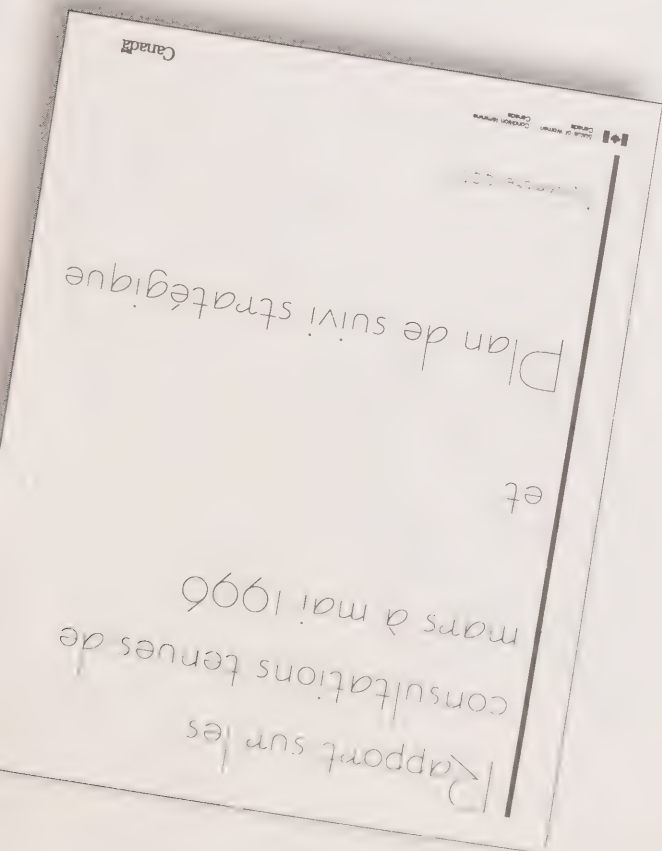 Rapport sur les
consultations tenues de
mars à mai 1996
et
Plan de suivi stratégique
Status of Women
Canada
Condition féminine
Canada
Canada